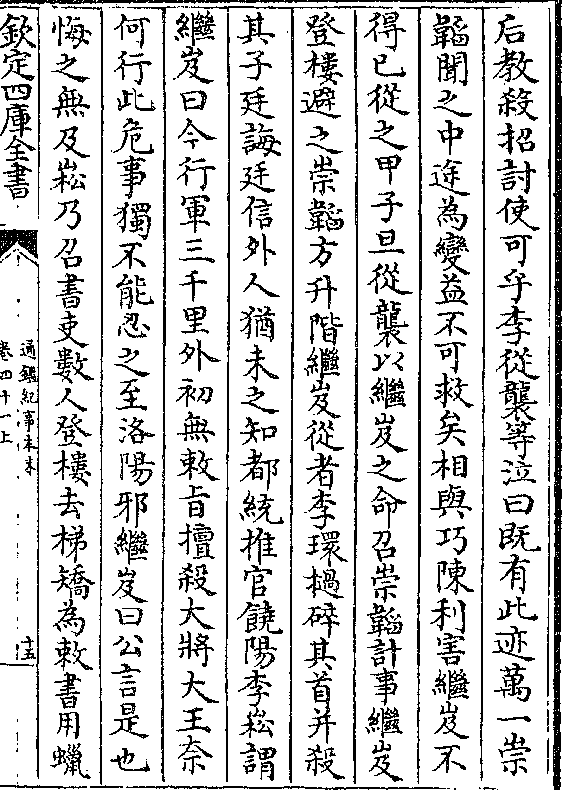 后教殺招討使可乎李從襲等泣曰既有此迹萬一崇
韜聞之中途為變益不可救矣相與巧陳利害繼岌不
得已從之甲子旦從襲以繼岌之命召崇韜計事繼岌
登樓避之崇韜方升階繼岌從者李環檛碎其首并殺
其子廷誨廷信外人猶未之知都統推官饒陽李崧謂
繼岌曰今行軍三千里外初無敕旨擅殺大將大王奈
何行此危事獨不能忍之至洛陽邪繼岌曰公言是也
悔之無及崧乃召書吏數人登樓去梯矯為敕書用蠟
欽定四庫全書
通鑑紀事本末
卷四十一上
十五